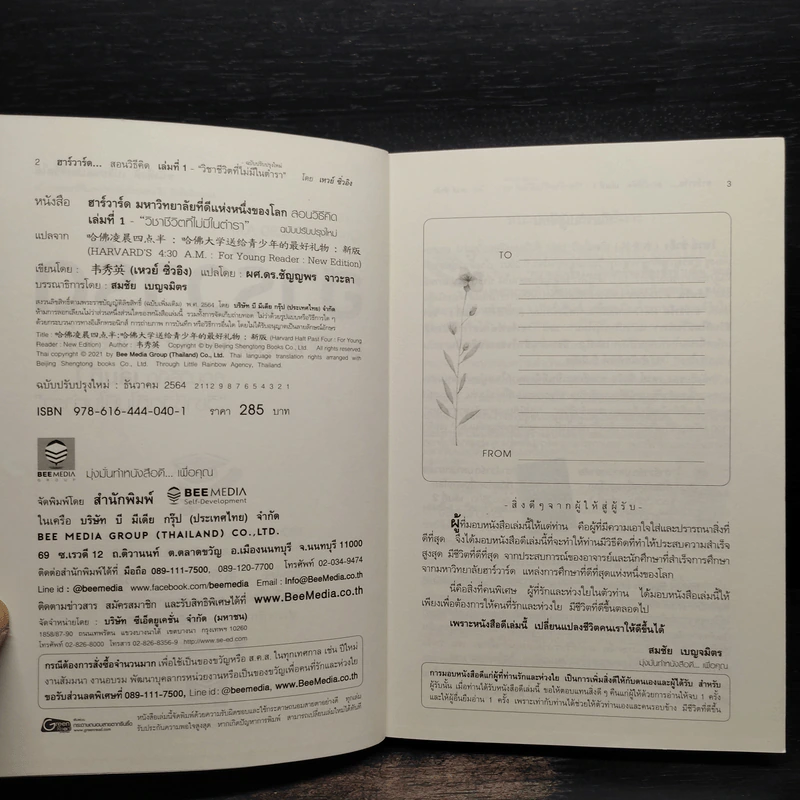 2 ฮาร์วาร์ด... สอนวิธีคิด เล่มที่ 1 - "วิชาชีวิตที่ไม่มีในตำรา" ฉบับปรับปรุงใหม่ โดย เหวย์ ซิ่วอิง
หนังสือ ฮาร์วาร์ด มหาวิทยาลัยที่ดีแห่งหนึ่งของโลก สอนวิธีคิด
เล่มที่ 1 - "วิชาชีวิตที่ไม่มีในตำรา" ฉบับปรับปรุงใหม่
แปลจาก 哈佛凌晨四点半 : 哈佛大学送给青少年的最好礼物 : 新版
(HARVARD'S 4:30 A.M. : For Young Reader : New Edition)
เขียนโดย : 韦秀英 (เหวย์ ซิ่วอิง) แปลโดย : ผศ.ดร.ชัญญพร จาวะลา
บรรณาธิการโดย : สมชัย เบญจมิตร
สงวนลิขสิทธิ์ตามพระราชบัญญัติลิขสิทธิ์ (ฉบับเพิ่มเติม) พ.ศ. 2564 โดย บริษัท บี มีเดีย กรุ๊ป (ประเทศไทย) จำกัด
ห้ามการลอกเลียนไม่ว่าส่วนหนึ่งส่วนใดของหนังสือเล่มนี้ รวมทั้งการจัดเก็บถ่ายทอด ไม่ว่าด้วยรูปแบบหรือวิธีการใด ๆ
ด้วยกระบวนการทางอิเล็กทรอนิกส์ การถ่ายภาพ การบันทึก หรือวิธีการอื่นใด โดยไม่ได้รับอนุญาตเป็นลายลักษณ์อักษร
Title : 哈佛凌晨四点半:哈佛大学送给青少年的最好礼物 : 新版 (Harvard Haft Past Four : For Young
Reader : New Edition) Author : 韦秀英 Copyright © by Beijing Shengtong Books Co., Ltd. All rights reserved.
Thai copyright © 2021 by Bee Media Group (Thailand) Co., Ltd. Thai language translation rights arranged with
Beijing Shengtong books Co., Ltd. Through Little Rainbow Agency, Thailand.
ฉบับปรับปรุงใหม่ : ธันวาคม 2564 2112 9 8 7 6 5 4 3 2 1
ISBN 978-616-444-040-1 ราคา 285 บาท
BEE MEDIA GROUP มุ่งมั่นทำหนังสือดี... เพื่อคุณ
จัดพิมพ์โดย สำนักพิมพ์ BEE MEDIA Self-Development
ในเครือ บริษัท บี มีเดีย กรุ๊ป (ประเทศไทย) จำกัด
BEE MEDIA GROUP (THAILAND) CO.,LTD.
69 ซ.เรวดี 12 ถ.ติวานนท์ ต.ตลาดขวัญ อ.เมืองนนทบุรี จ.นนทบุรี 11000
ติดต่อสำนักพิมพ์ได้ที่ มือถือ 089-111-7500, 089-120-7700 โทรศัพท์ 02-034-9474
Line id : @beemedia www.facebook.com/beemedia Email : Info@BeeMedia.co.th
ติดตามข่าวสาร สมัครสมาชิก และรับสิทธิพิเศษได้ที่ www.BeeMedia.co.th
จัดจำหน่ายโดย : บริษัท ซีเอ็ดยูเคชั่น จำกัด (มหาชน)
1858/87-90 ถนนเทพรัตน แขวงบางนาใต้ เขตบางนา กรุงเทพฯ 10260
โทรศัพท์ 02-826-8000 โทรสาร 02-826-8356-9 http://www.se-ed.com
กรณีต้องการสั่งซื้อจำนวนมาก เพื่อใช้เป็นของขวัญหรือ ส.ค.ส. ในทุกเทศกาล เช่น ปีใหม่
งานสัมมนา งานอบรม พัฒนาบุคลากรหน่วยงานหรือเป็นของขวัญเพื่อคนที่รักและห่วงใย
ขอรับส่วนลดพิเศษที่ 089-111-7500, Line id : @beemedia, www.BeeMedia.co.th
Green Read หนังสือเล่มนี้จัดพิมพ์ด้วยความรับผิดชอบและใช้กระดาษถนอมสายตาอย่างดี ทุกเล่ม
www.greenread.com รับประกันความพอใจสูงสุด หากเกิดปัญหาการพิมพ์ สามารถเปลี่ยนเล่มใหม่ได้ทันที
3
TO
FROM
- สิ่งดีๆจากผู้ให้สู่ผู้รับ -
ผู้ที่มอบหนังสือเล่มนี้ให้แด่ท่าน คือผู้ที่มีความเอาใจใส่และปรารถนาสิ่งที่
ดีที่สุด จึงได้มอบหนังสือเล่มนี้ที่จะทำให้ท่านมีวิธีคิดที่ทำให้ประสบความสำเร็จ
สูงสุด มีชีวิตที่ดีที่สุด จากประสบการณ์ของอาจารย์และนักศึกษาที่สำเร็จการศึกษา
จากมหาวิทยาลัยฮาร์วาร์ด แหล่งการศึกษาที่ดีที่สุดแห่งหนึ่งของโลก
นี่คือสิ่งที่คนพิเศษ ผู้ที่รักและห่วงใยในตัวท่าน ได้มอบหนังสือเล่มนี้ให้
เพียงเพื่อต้องการให้คนที่รักและห่วงใย มีชีวิตที่ดีขึ้นตลอดไป
เพราะหนังสือดีเล่มนี้ เปลี่ยนแปลงชีวิตคนเราให้ดีขึ้นได้
สมชัย เบญจมิตร
มุ่งมั่นทำหนังสือดี... เพื่อคุณ
การมอบหนังสือดีแก่ผู้ที่ท่านรักและห่วงใย เป็นการเพิ่มสิ่งดีให้กับตนเองและผู้ได้รับ สำหรับ
ผู้รับนั้น เมื่อท่านได้รับหนังสือเล่มนี้ ขอให้ตอบแทนสิ่งดี ๆ คืนแก่ผู้ให้ด้วยการอ่านให้จบ 1 ครั้ง
และให้ผู้อื่นยืมอ่าน 1 ครั้ง เพราะเท่ากับท่านได้ช่วยให้ตัวท่านเองและคนรอบข้าง มีชีวิตที่ดีขึ้น